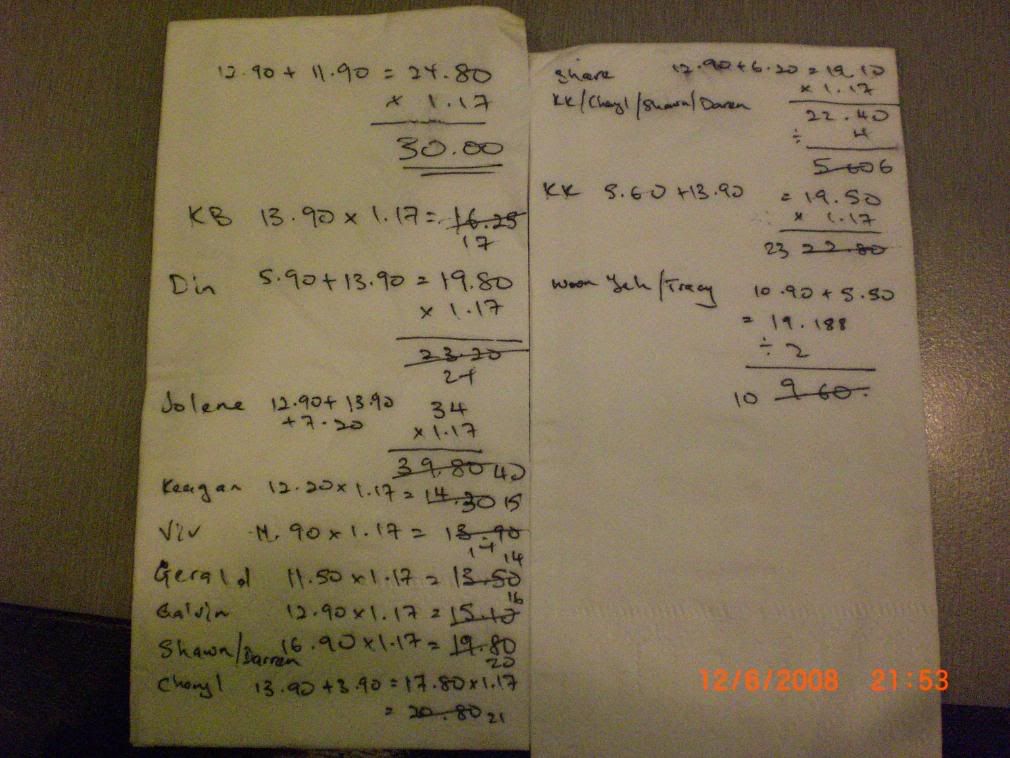 12.90 + 11.90 = 24.80
x 1.17
30.00
KB 13.90 x 1.17 = 16.25
17
Din 5.90 + 13.90 = 19.80
x 1.17
23.20
24
Jolene 12.90 + 13.90 34
+ 7.20 x 1.17
39.80 40
Keagan 12.20 x 1.17 = 14.30 15
Viv 11.90 x 1.17 = 13.90
14
Gerald 11.50 x 1.17 = 13.50 14
Galvin 12.90 x 1.17 = 15.10 16
Shawn/Darren 16.90 x 1.17 = 19.80
20
Cheryl 13.90 + 3.90 = 17.80 x 1.17
= 20.80 21
Share 12.90 + 6.20 = 19.10
x 1.17
KK/Cheryl/Shawn/Daren 22.40
÷ 4
5.606
KK 5.60 + 13.90 = 19.50
x 1.17
23 22.80
Woon Yeh/Tracy 10.90 + 5.50
= 19.188
÷ 2
10 9.60
12/6/2008 21:53